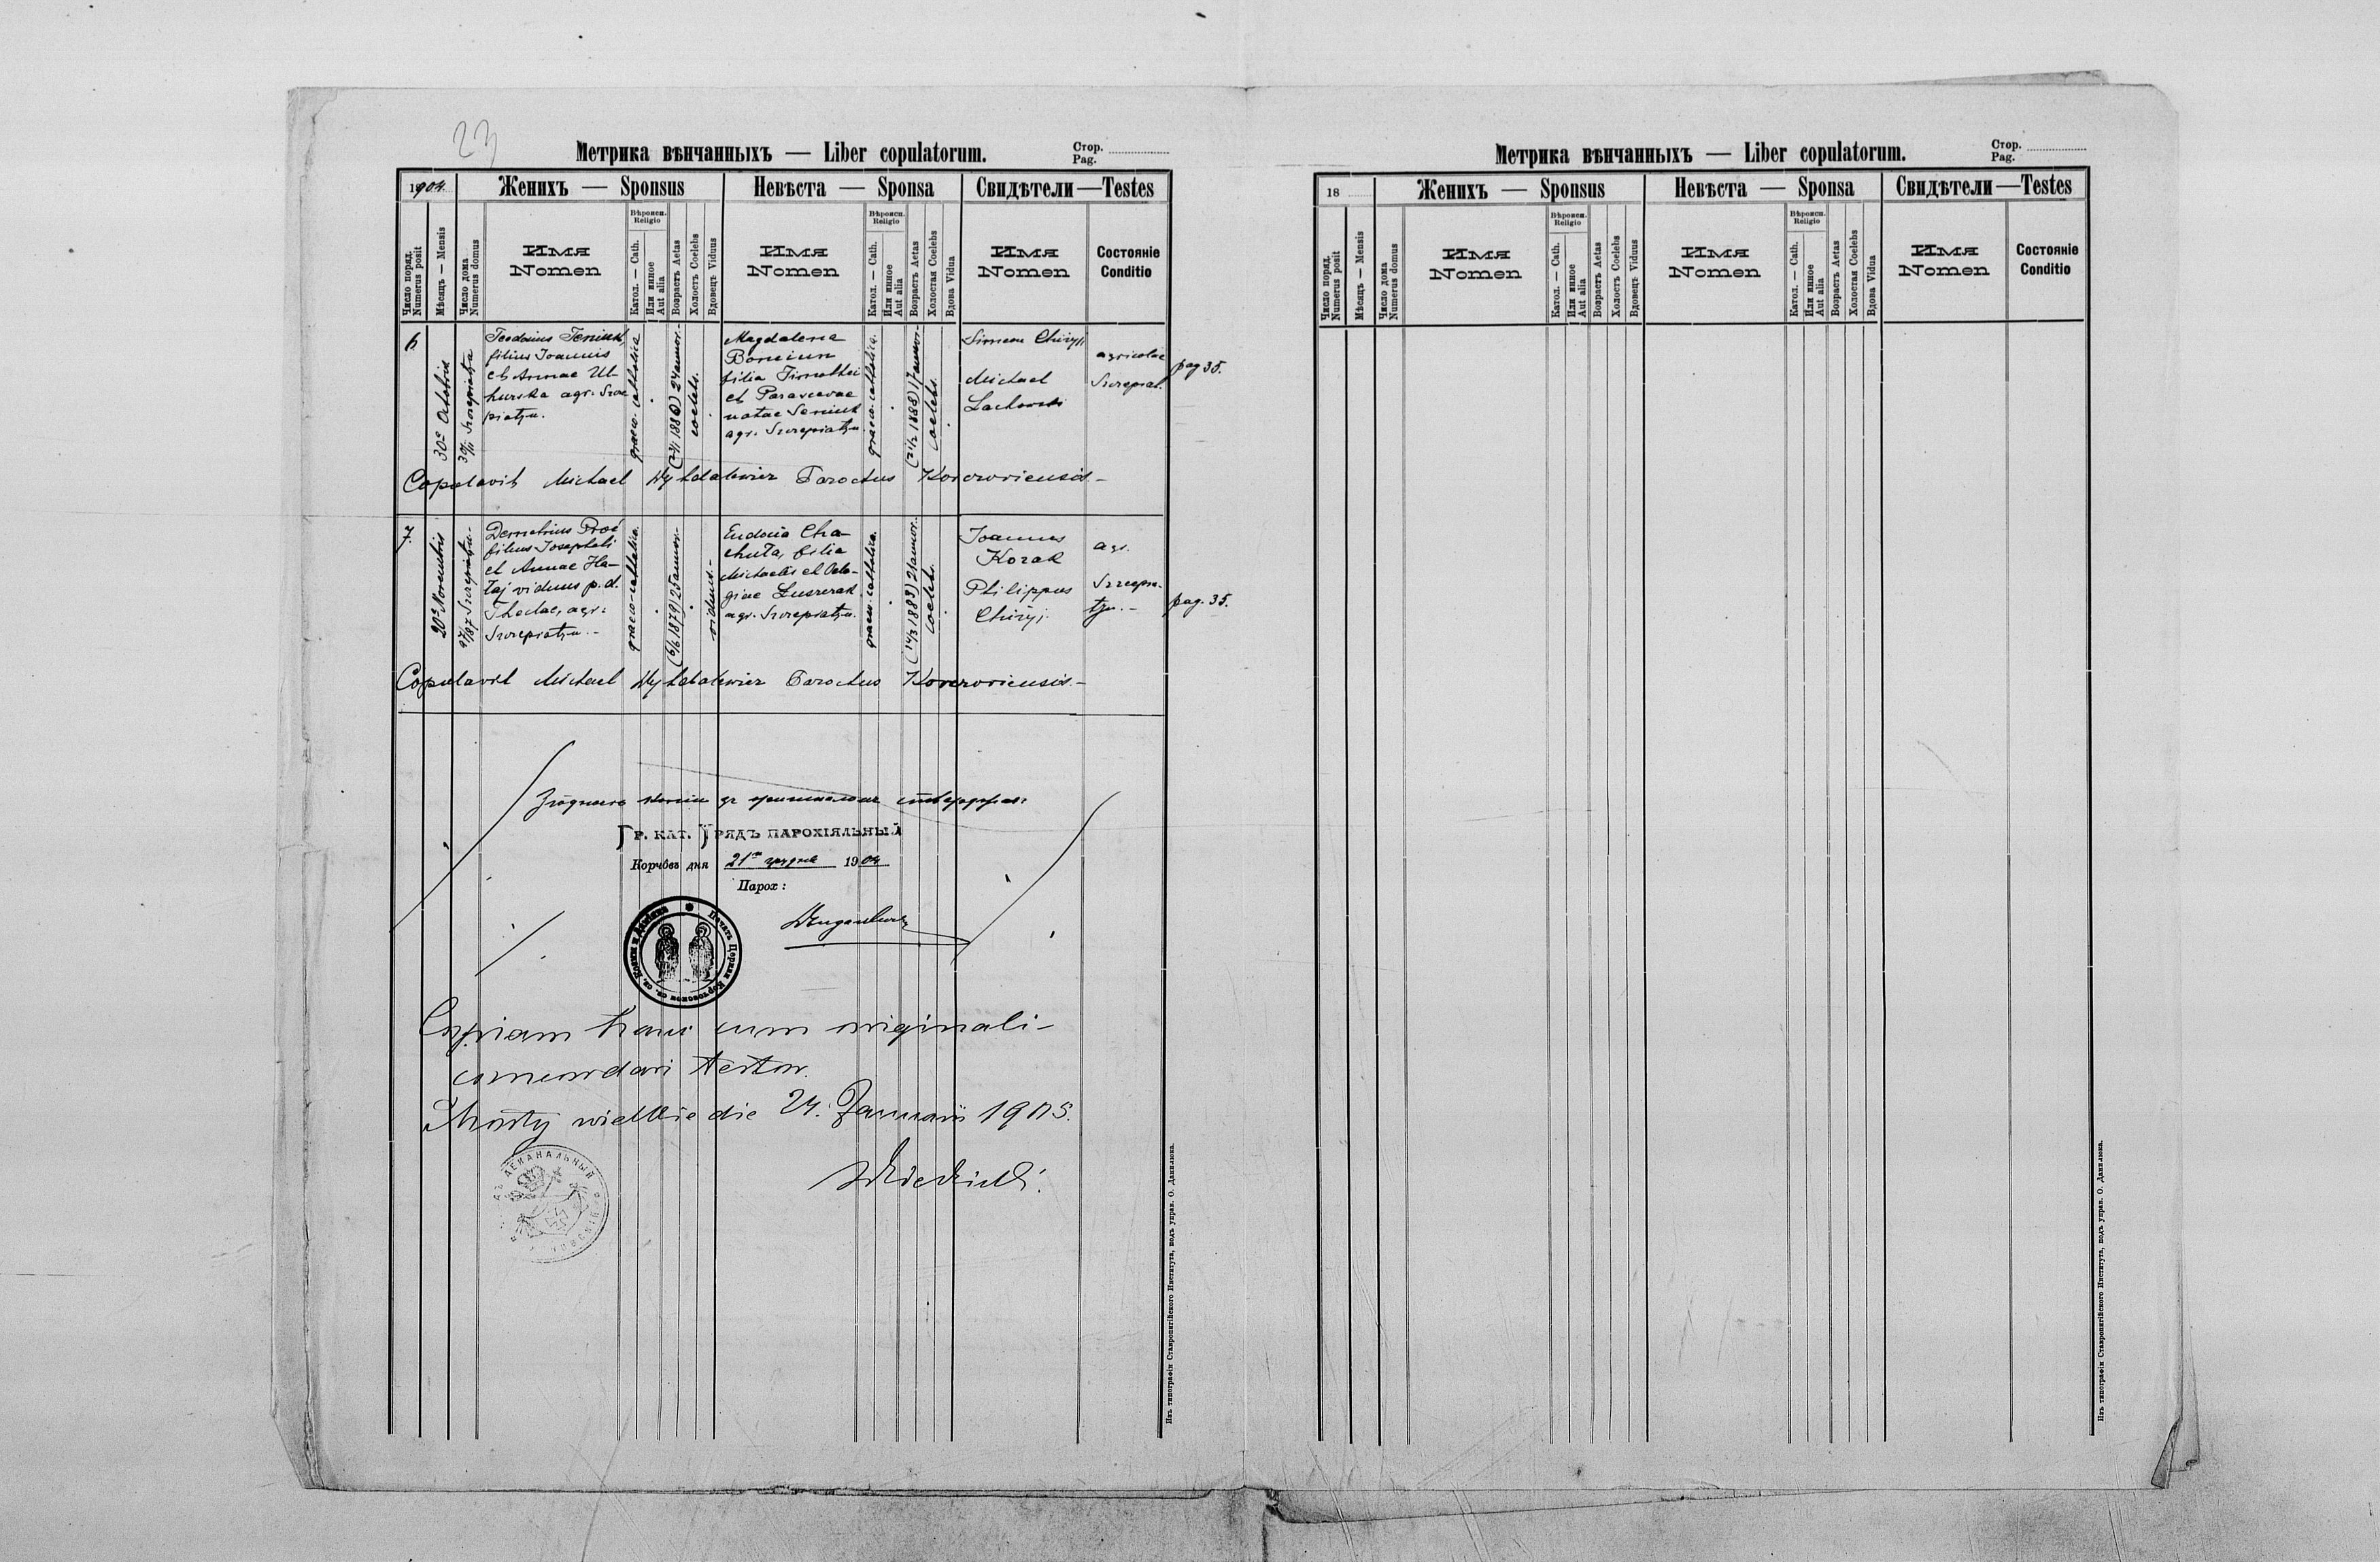 23
Метрика вѣнчанныхъ — Liber copulatorum.
Стор.
Pag.
1904
Женихъ — Sponsus
Невѣста — Sponsa
Свидѣтели — Testes
Число поряд.
Numerus posit
Мѣсяцъ — Mensis
Число дома
Numerus domus
Имя
Nomen
Вѣроисп.
Religio
Катол. — Cath.
Или инное
Aut alia
Возрастъ Aetas
Холостъ Coelebs
Вдовецъ Viduus
Имя
Nomen
Вѣроисп.
Religio
Катол. — Cath.
Или инное
Aut alia
Возрастъ Aetas
Холостая Coelebs
Вдова Vidua
Имя
Nomen
Состоянiе
Conditio
6
30 a Octobris
Teodosius
filius Joannis
et Annae
agr.
graeco-catholica
24 annor.
coelebs.
Magdalena
filia Timothei
et Parascevae
natae Seniuk
agr.
graeco-catholica.
17 annor.
coelebs.
Simeon Chiryj
Michael
agricolae
pag 35.
Copulavit Michael Parochus Korczoviensis. –
7.
20 a Novembris
97/87
Demetrius
filius Josephati
et Annae Ha-
viduus p. d.
Theclae, agr:
graeco-catholica.
(6/6 1879) 25 annor.
viduus. –
Eudocia Cha-
chuła, filia
Michaelis et
agr.
graeco-catholica.
(14/3 1883) 21 annor.
coelebs.
Joannes
Kozak
Philippus
Chiryj.
agr.
pag. 35.
Copulavit Michael Parochus Korczoviensis. –
Гр. кат. Урядъ парохіяльный
Корчôвъ дня 21 грудня 1904
Парох:
Печать Церкви Корчовской св. св. Козмы и Даміана
Copiam hanc cum originali
concordari testor.
Mosty wielkie die 24. Januarii 1905.
ДЕКАНАЛЬНЫЙ
Изъ типографіи Ставропигійского Института, подъ управ. О. Данилюка.
Метрика вѣнчанныхъ — Liber copulatorum.
Стор.
Pag.
18
Женихъ — Sponsus
Невѣста — Sponsa
Свидѣтели — Testes
Число поряд.
Numerus posit
Мѣсяцъ — Mensis
Число дома
Numerus domus
Имя
Nomen
Вѣроисп.
Religio
Катол. — Cath.
Или инное
Aut alia
Возрастъ Aetas
Холостъ Coelebs
Вдовецъ Viduus
Имя
Nomen
Вѣроисп.
Religio
Катол. — Cath.
Или инное
Aut alia
Возрастъ Aetas
Холостая Coelebs
Вдова Vidua
Имя
Nomen
Состоянiе
Conditio
Изъ типографіи Ставропигійского Института, подъ управ. О. Данилюка.